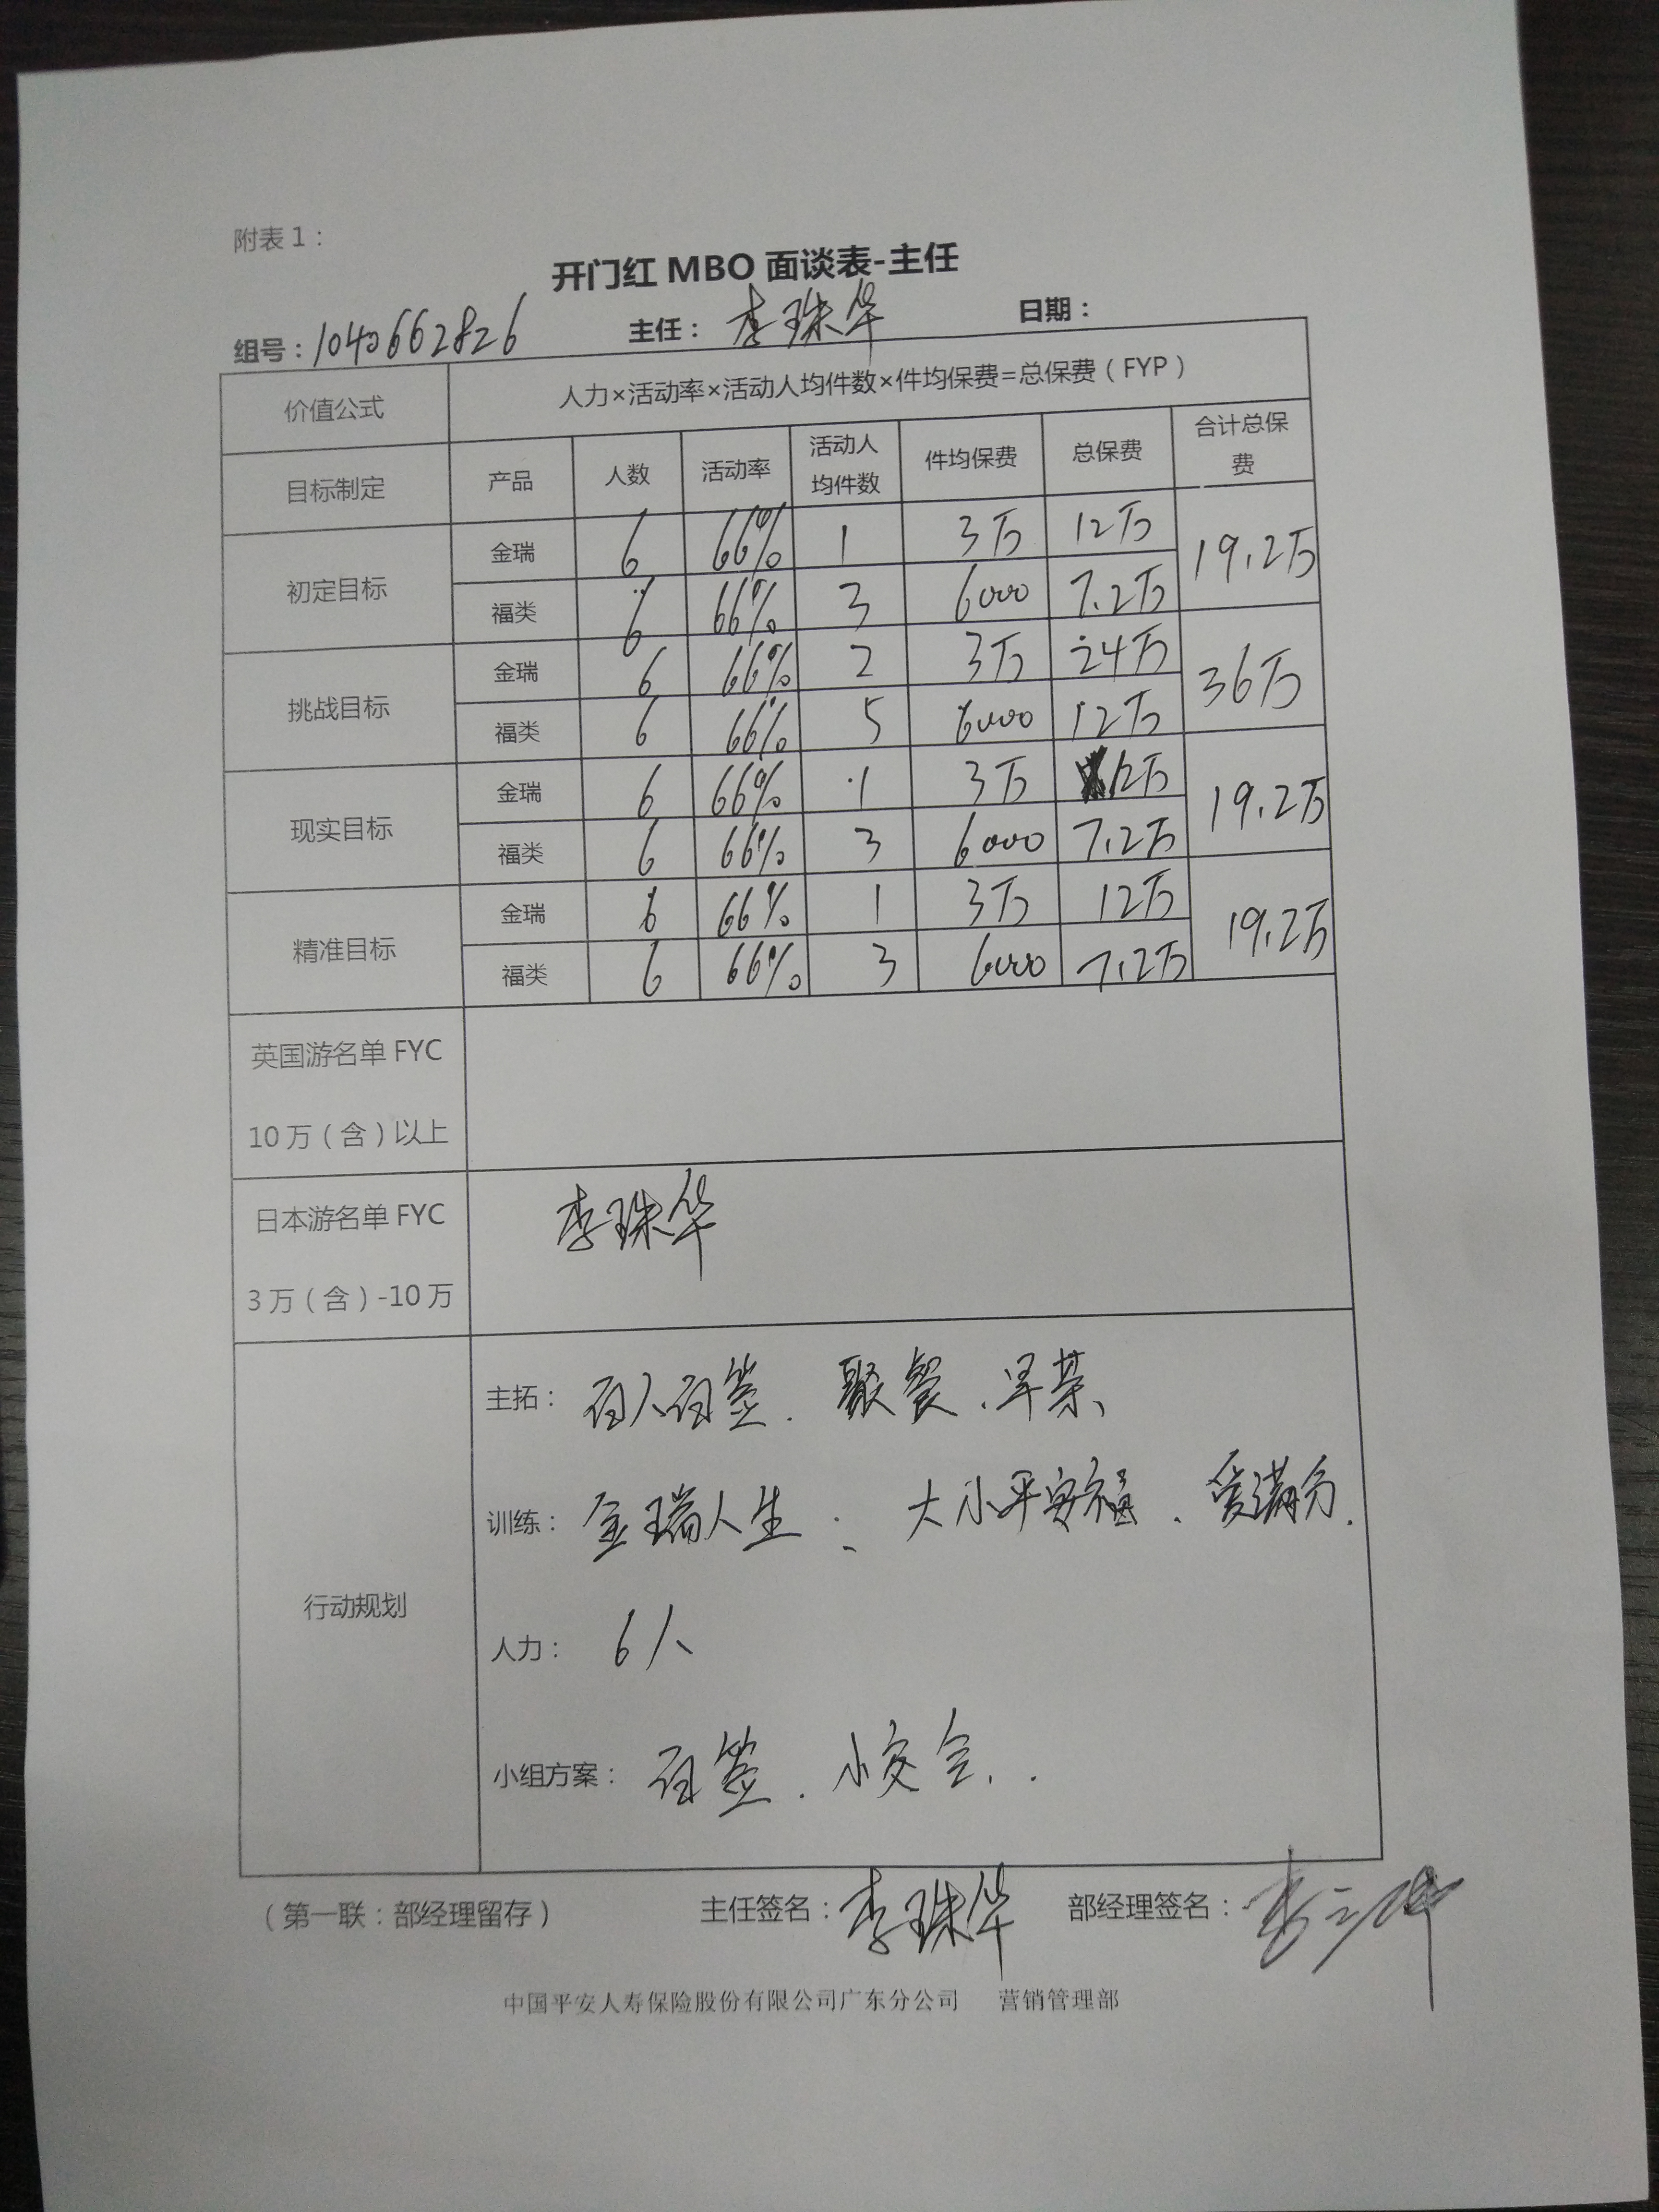 附表1：
开门红 MBO 面谈表-主任
组号：1040662826 主任：李珠华 日期：
价值公式 人力×活动率×活动人均件数×件均保费=总保费（FYP）
目标制定 产品 人数 活动率 活动人均件数 件均保费 总保费 合计总保费
初定目标 金瑞 6 66% 1 3万 12万 19.2万
福类 6 66% 3 6000 7.2万
挑战目标 金瑞 6 66% 2 3万 24万 36万
福类 6 66% 5 6000 12万
现实目标 金瑞 6 66% 1 3万 12万 19.2万
福类 6 66% 3 6000 7.2万
精准目标 金瑞 6 66% 1 3万 12万 19.2万
福类 6 66% 3 6000 7.2万
英国游名单 FYC
10万（含）以上
日本游名单 FYC 李珠华
3万（含）-10万
行动规划
主拓： 百人百签、聚餐、早茶、
训练： 金瑞人生、大小平安福、爱满分.
人力： 6人
小组方案： 百签、小交会、.
（第一联：部经理留存） 主任签名：李珠华 部经理签名：
中国平安人寿保险股份有限公司广东分公司 营销管理部